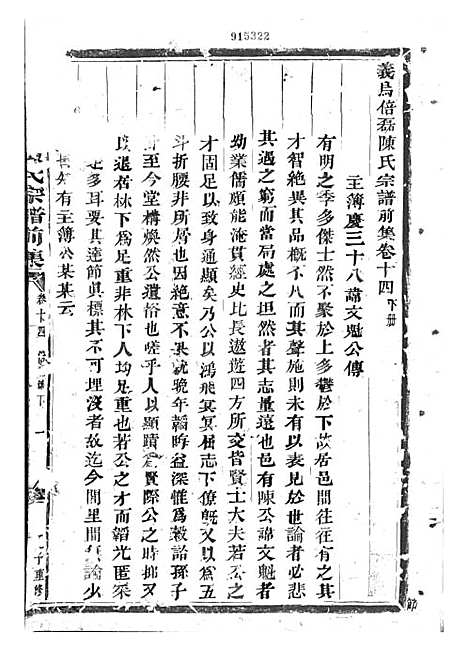 915322
義烏倍磊陳氏宗譜前集卷十四 下册
主薄慶三十八諱文魁公傳
有明之季多傑士然不聚於上多鬱於下故居邑間往往有之其
才智絶異其品概不凡而其聲施則未有以表見於世論者必悲
其遇之窮而當局處之坦然者其志量遠也邑有陳公諱文魁者
幼業儒頗能淹貫經史比長遨遊四方所交皆賢士大夫若公之
才固足以致身通顯矣乃公以鴻飛冥冥屈志下僚旣又以爲五
斗折腰非所屑也飄然就晚年韜晦益深惟爲榖詒孫子
至今堂構煥然公遺俗也嗟乎人以顯蹟爲賢際公之時抑又
以退若林下爲足重非林下人均足重也若公之才而韜光匿采
是多耳要其達節眞標其不可埋没者故迄今閭里間論少
有主薄公某某云
氏宗譜前集
卷十四
下 一
重修